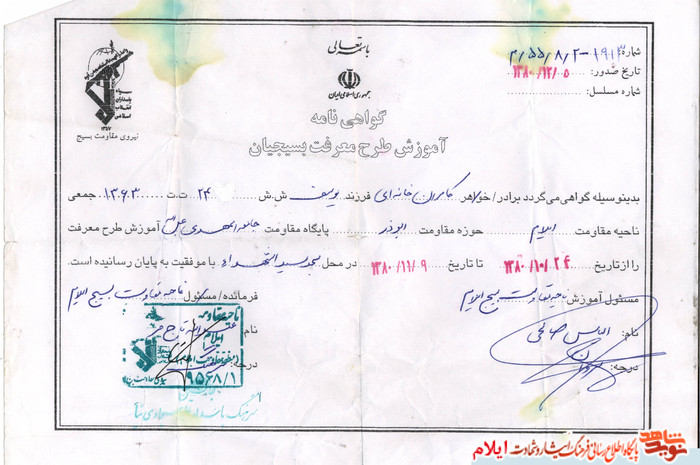 باسمه تعالی
جمهوری اسلامی ایران
شماره: ۱۹۱۳-۲/۸/۵۵/م
تاریخ صدور: ۱۳۸۰/۱۲/۰۵
شماره مسلسل:
سپاه
پاسداران
انقلاب
اسلامی
۱۳۵۷
نیروی مقاومت بسیج
گواهی نامه
آموزش طرح معرفت بسیجیان
بدینوسیله گواهی می‌گردد برادر/خواهر کامران خانه‌ای فرزند یوسف ش.ش ۲۴ ت.ت ۱۳۶۳ جمعی
ناحیه مقاومت ایلام حوزه مقاومت ابوذر پایگاه مقاومت المهدی آموزش طرح معرفت
را از تاریخ ۱۳۸۰/۱۰/۲۴ تا تاریخ ۱۳۸۰/۱۱/۰۹ در محل مسجد سیدالشهداء با موفقیت به پایان رسانیده است.
مسئول آموزش ناحیه مقاومت بسیج ایلام
فرمانده/مسئول ناحیه مقاومت بسیج ایلام
نام: الماس صالحی
نام:
درجه:
درجه:
ناحیه مقاومت
ایلام
۹۵۶۸/۱
نوید شاهد
پایگاه اطلاع رسانی فرهنگ ایثار و شهادت ایلام